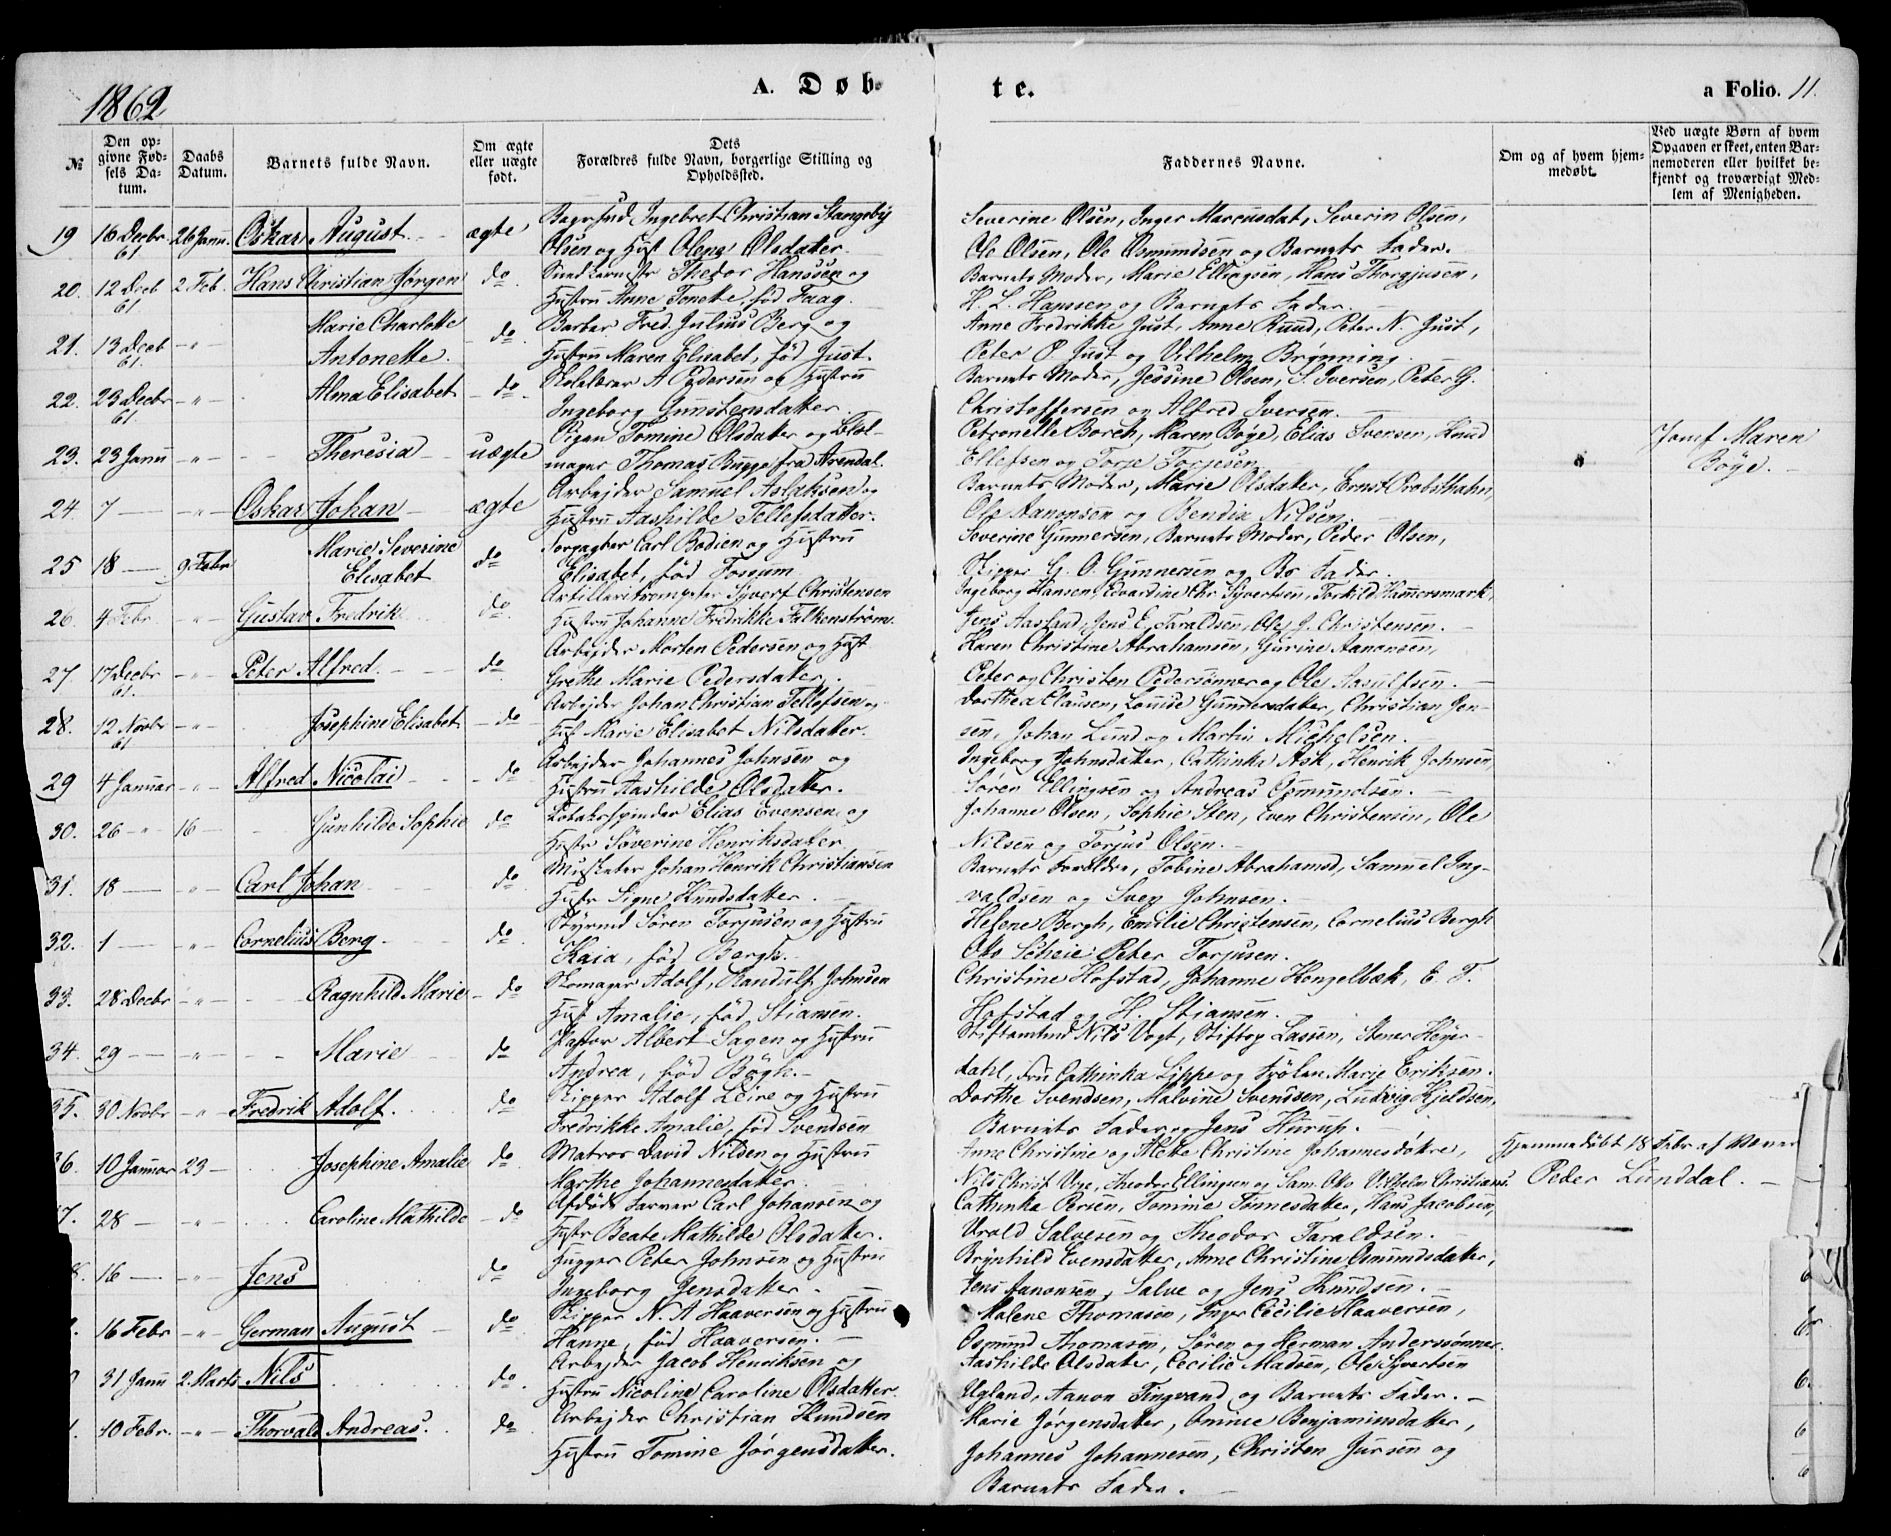 1862
A. Døb
te.
a Folio. 11.
№
Den opgivne Fødsels Datum.
Daabs Datum.
Barnets fulde Navn.
Om ægte eller uægte født.
Dets Forældres fulde Navn, borgerlige Stilling og Opholdssted.
Faddernes Navne.
Om og af hvem hjemmedøbt.
Ved uægte Børn af hvem Opgaven er skeet, enten Barnemoderen eller hvilket bekjendt og troværdigt Medlem af Menigheden.
19 16 Decbr 61 26 Janu. Oskar August ægte Ingebret Christian Stangeby Severine Olsen, Inger Marcusdat, Severin Olsen,
Olsen og Hust Olena Olsdatter. Ole Olsen, Ole Osmundsen og Barnets Fader.
20. 12 Decb 61 2 Feb. Hans Christian Jørgen do Thedor Hanssen og Barnets Moder, Marie Ellingsen, Hans Thorgjusen,
Hustru Anne Tonette, fød Faag. H. L. Hanssen og Barnets Fader.
21. 13 Decb 61. -"- Marie Charlotte do Barber Fred. Julius Berg og Anne Fredrikke Just, Anne Ruud, Peter N. Just,
Antonette. Hustru Maren Elisabet, fød Just. Peter P. Just og Vilhelm Brønning.
22. 23 Decbr 61. -"- Alma Elisabet do Skolelærer A Pedersen og Hustru Barnets Moder, Jessine Olsen, S. Iversen, Peter G.
Ingeborg Gunstensdatter. Christoffersen og Alfred Iversen.
23. 23 Janu -"- Theresia uægte Pigen Tomine Olsdatter og Blok- Petronelle Borch, Maren Bøye, Elias Iversen, Knud Jomf Maren
mager Thomas Bugge fra Arendal. Ellefsen og Torje Torjesen. Bøye.
24. 7 -"- Oskar Johan ægte Arbejder Samuel Aslaksen og Barnets Moder, Marie Olsdatter, Ernst Probsthahn,
Hustru Aashilde Tellefsdatter. Ole Aanonsen og Bendix Nilsen.
25 18 9 Febr Marie Severine do Carl Bodien og Hustru Severine Gunnersen, Barnets Moder, Peder Olsen,
Elisabet Elisabet, fød Fossum. Skipper G. O. Gunnersen og Bs Fader.
26. 4 Febr. -"- Gustav Fredrik do Artilleritrompeter Syvert Christensen Ingeborg Hansen, Edvardine Chr. Syvertsen, Torkild Hammersmark,
Hustru Johanne Fredrikke Falkenstrøm. Jens Aasland, Jens E. Taraldsen, Ole J. Christensen.
27 17 Decbr 61. -"- Peter Alfred. do Arbejder Morten Pedersen og Hust Karen Christine Abrahamsen, Gurine Aanonsen,
Grethe Marie Pedersdatter. Peter og Christen Pedersønner og Ole Aasulfsen.
28. 12 Novbr 61 -"- Josephine Elisabet do Arbejder Johan Christian Tellefsen og Dorthea Clausen, Louise Gunnersdatter, Christian Jen-
Hust Marie Elisabet Nilsdatter. sen, Johan Lund og Martin Michelsen.
29 4 Januar -"- Alfred Nicolai do Arbejder Johannes Johnsen og Ingeborg Johnsdatter, Cathinka Ask, Henrik Johnsen,
Hustru Aashilde Olsdatter. Søren Ellingsen og Andreas Osmundsen.
30. 26 -"- 16 Gunhilde Sophie do Tobaksspinder Elias Evensen og Johanne Olsen, Sophie Sten, Even Christensen, Ole
Hustr Severine Henriksdatter Nilsen og Torjus Olsen.
31. 18 -"- Carl Johan do Musketer Johan Henrik Christiansen Barnets Forældre, Tobine Abrahamsd, Samuel Ing-
Hustr Signe Knudsdatter. valdsen og Sven Johnsen.
32. 1 -"- Cornelius Berg do Styrmd Søren Torjusen og Hustru Helene Bergh, Emilie Christensen, Cornelius Bergh
Kaia, fød Bergh. Oks Scheie Peter Torjusen.
33. 28 Decbr -"- Ragnhild Marie do Skomager Adolf Randulf Johnsen Christine Hofstad, Johanne Kongelbæk, E. T.
Hust Amalie, fød Stiansen. Hofstad og H. Stiansen.
34. 29 -"- Marie do Pastor Albert Sagen og Hustru Stiftamtmd Nils Vogt, Lassen, Stener Heyer-
Andrea, fød Bøgh. dahl, Fru Cathinka Lippe og Frøken Marie Eriksen.
35. 30 Novbr -"- Fredrik Adolf. do Skipper Adolf Leire og Hustru Dorthe Svendsen, Malvine Svendsen, Ludvig Kjeldsen,
Fredrikke Amalie, fød Svendsen Barnets Fader og Jens Hurup.
36. 10 Januar 23 Josephine Amalie do Matros David Nilsen og Hustru Anne Christine og Mette Christine Johannesdøtre, Hjemmedøbt 18 Febr af
Marthe Johannesdatter. Nils Christ Uge, Theodor Ellingsen og Sam. Otto Vilhelm Christians. Peder Lunddal.
7. 28 -"- Caroline Mathilde do Afdøde Garver Carl Johansen og Cathinka Persen, Tomine Tønnesdatter, Hans Jacobsen,
Hustr Beate Mathilde Olsdatter. Urold Salvesen og Theodor Taraldsen.
8. 16 -"- Jens do Hugger Peter Johnsen og Hustru Brynhild Evensdatter, Anne Christine Osmundsdatter,
Ingeborg Jensdatter. Jens Aanonsen, Salve og Jens Knudsen.
16 Febr -"- German August do Skipper N. A Haaversen og Hustru Malene Thomasen, Inger Cecilie Haaversen,
Hanne, fød Haaversen. Osmund Thomasen, Søren og Herman Anderssønner.
31 Janu 2 Marts Nils do Arbejder Jacob Henriksen og Aashilde Olsdatter, Cecilie Madsen, Ole Syvertsen
Hustru Nicoline Caroline Olsdatter. Ugland, Aanon Tingvand og Barnets Fader.
10 Febr. -"- Thorvald Andreas. do Arbejder Christian Knudsen Marie Jørgensdatter, Omine Benjaminsdatter,
Hustru Tomine Jørgensdatter. Johannes Johannesen, Christen Jursen og
Barnets Fader.